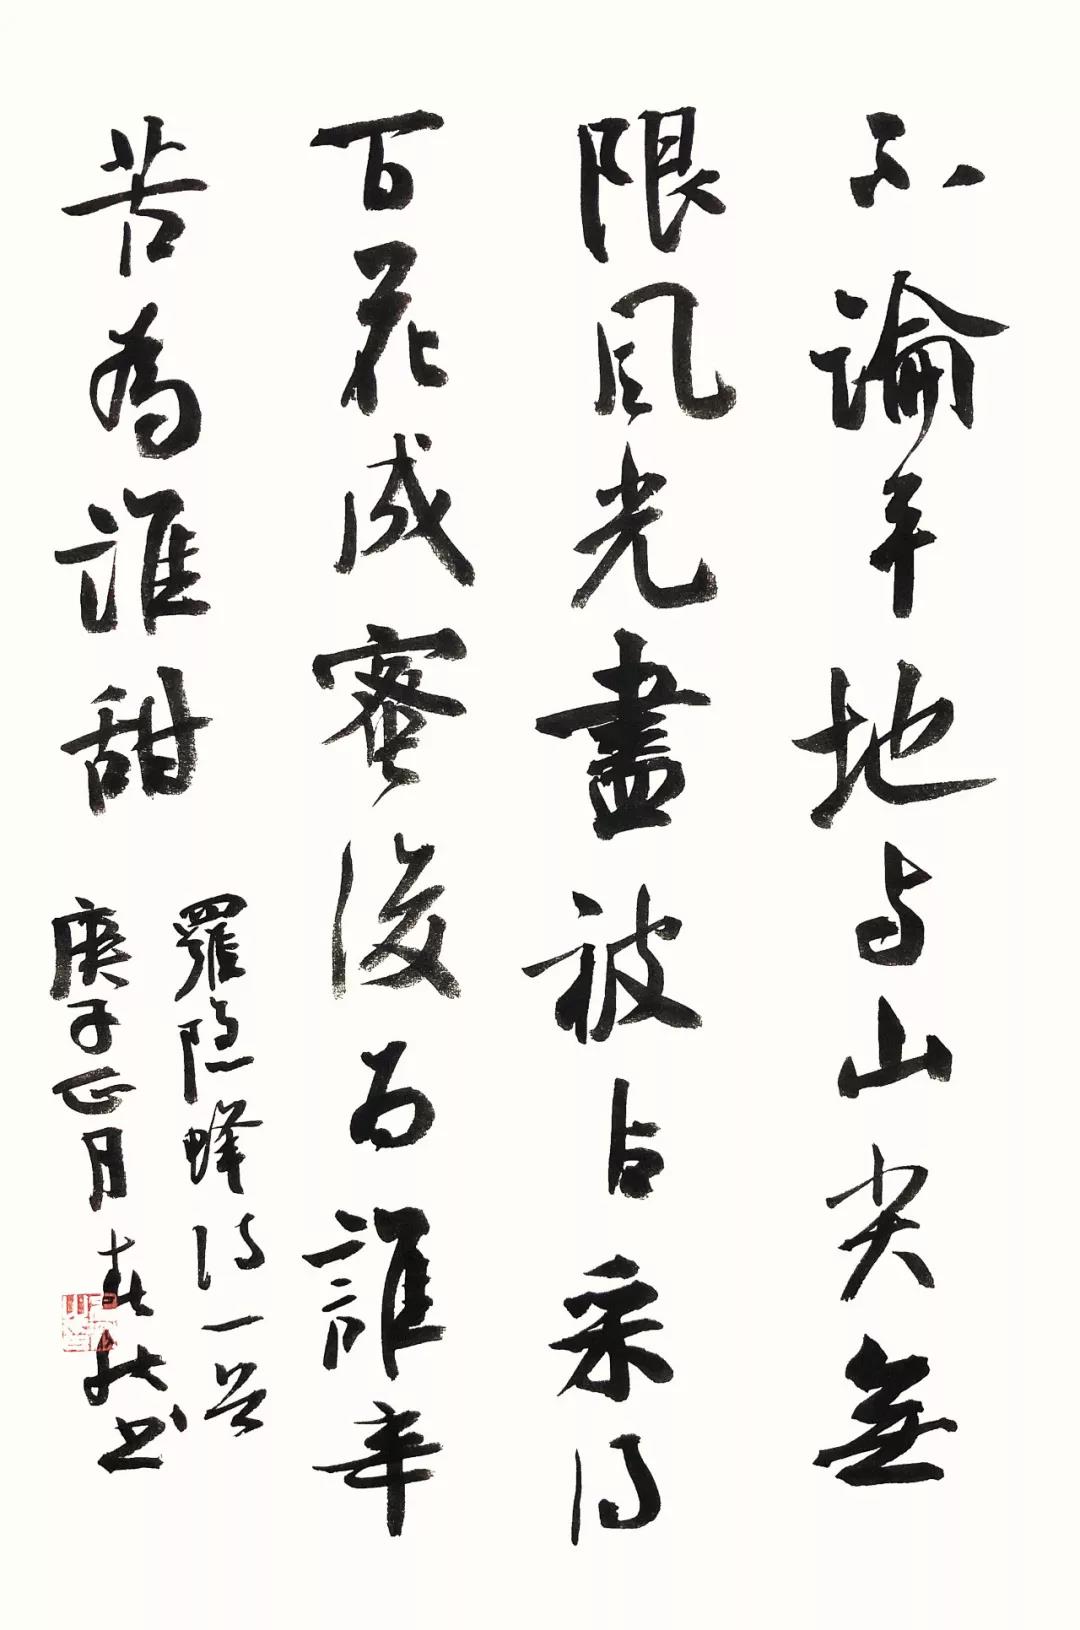 不論平地与山尖無
限風光盡被占采得
百花成蜜後为誰辛
苦為誰甜
羅隐蜂诗一首
庚子正月春书